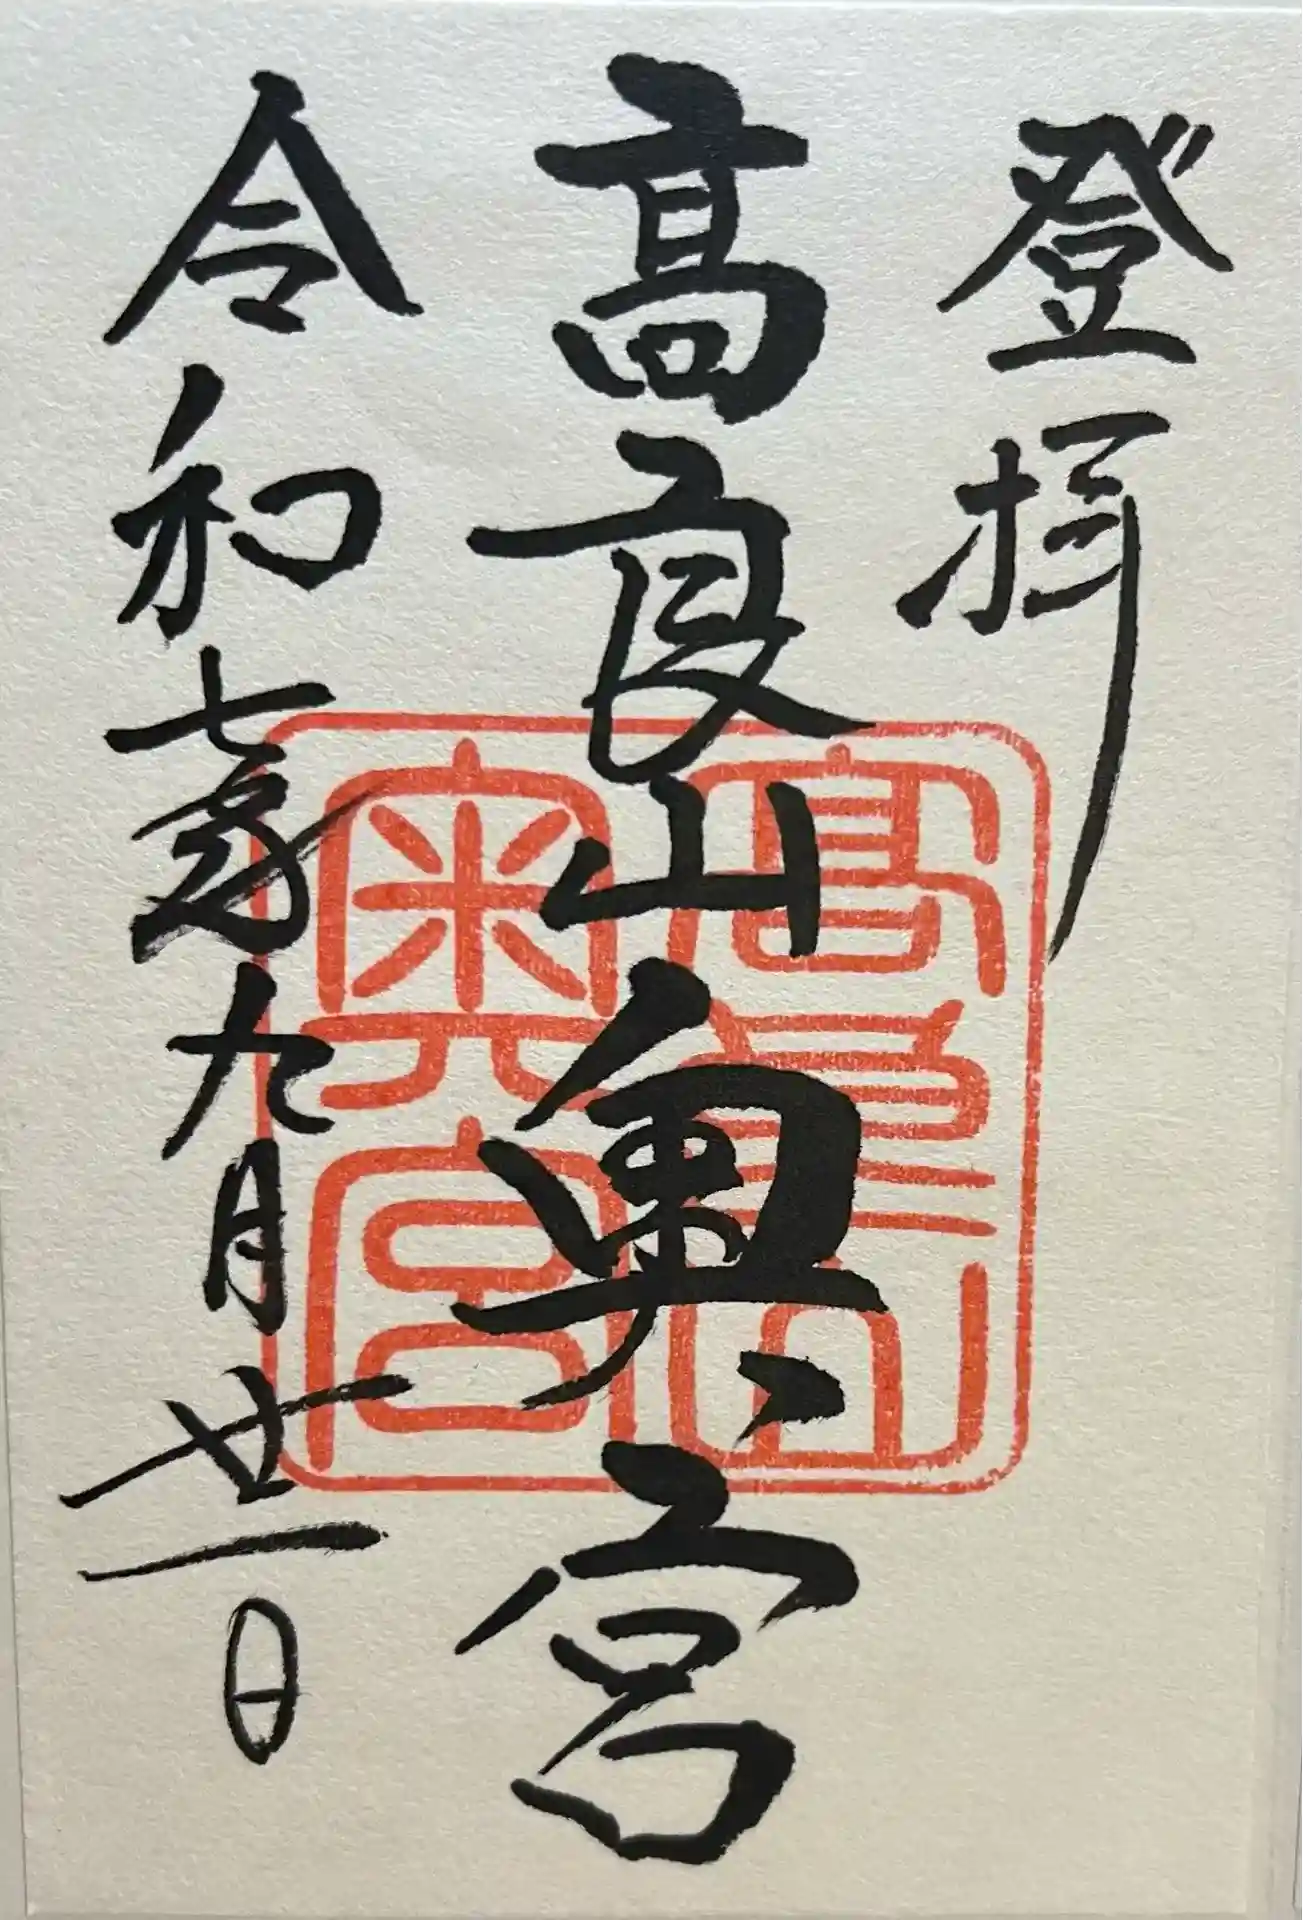 登拝
髙良山奥宮
令和七年九月廿一日
髙良山
奥宮